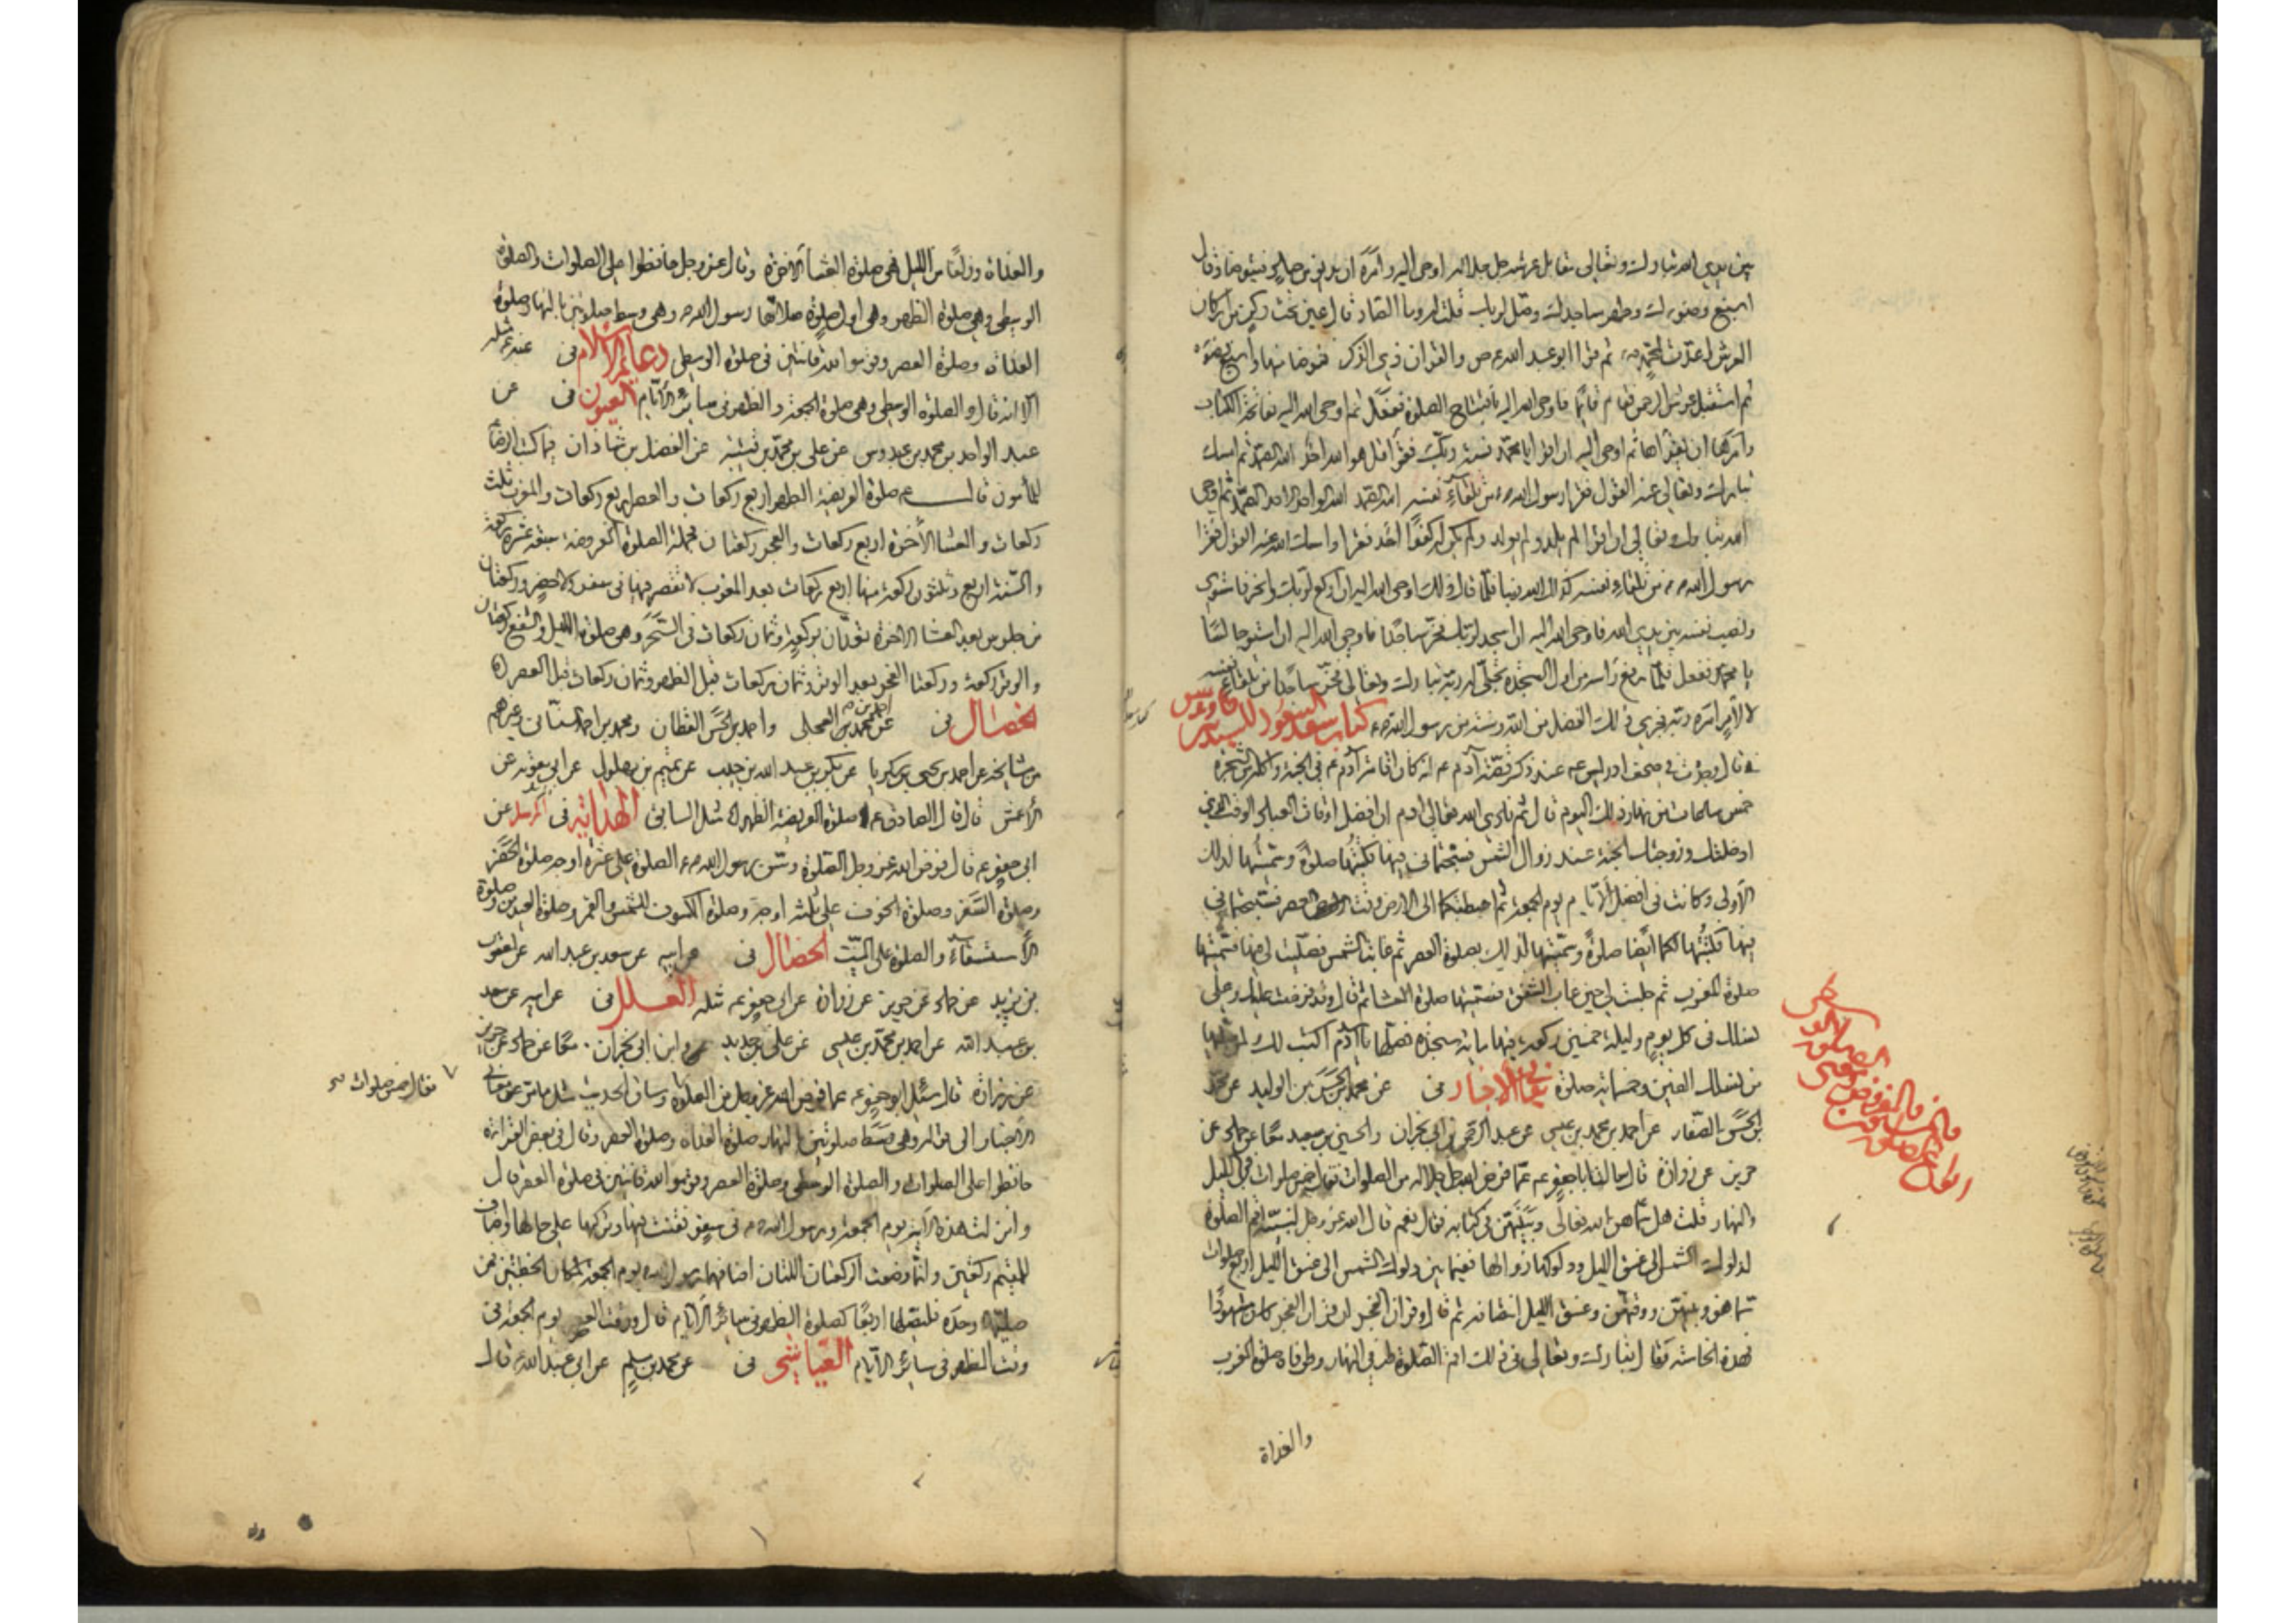 بين يدي الله تبارك وتعالى مقابل عرشه جل جلاله اوحى اليه وامره ان يدنو من صاد فيتوضأ وقال
اسبغ وضوءك وطهر مساجدك وصل لربك قلت له وما الصاد قال عين تحت ركن من اركان
العرش اعدت لمحمد ص ثم قرأ ابو عبد الله ع ص والقران ذي الذكر فتوضأ منها واسبغ وضوءه
ثم استقبل عرش الرحمن فقام قائما فاوحى الله اليه بافتتاح الصلوة ففعل ثم اوحى الله اليه بفاتحة الكتاب
وامره ان يقرأها ثم اوحى اليه ان اقرأ يا محمد نسبة ربك فقرأ قل هو الله احد الله الصمد ثم امسك
تبارك وتعالى عنه القول فقرأ رسول الله ص من تلقاء نفسه الله الصمد الله الواحد الاحد الصمد ثم اوحى
الله تبارك وتعالى ان اقرأ لم يلد ولم يولد ولم يكن له كفوا احد فقرأ وامسك الله عنه القول فقرأ
رسول الله ص من تلقاء نفسه كذلك الله ربنا فلما قال ذلك اوحى الله اليه ان اركع لربك وانحر فاستوى
ونصب نفسه بين يدي الله فاوحى الله اليه ان اسجد لربك فخر ساجدا فاوحى الله اليه ان استو جالسا
يا محمد ففعل فلما رفع رأسه من اول السجدة تجلى له ربه تبارك وتعالى فخر ساجدا من تلقاء نفسه
لا لامر امره ربه فجرى ذلك الفضل من الله وسنة من رسول الله ص كتاب سعد السعود للسيد بن طاوس
قال وجدت في صحف ادريس ع عند ذكر قصة آدم ع انه كان اقامة آدم ع في الجنة واكله من الشجرة
خمس ساعات من نهار ذلك اليوم قال ثم نادى الله تعالى ادم ان افضل اوقات العبادة الوقت الذي
ادخلتك وزوجتك الجنة عند زوال الشمس فسبحتماني فيها فكتبتها صلوة وسميتها لذلك
الاولى وكانت في افضل الايام يوم الجمعة ثم اهبطتكما الى الارض وقت العصر فسبحتماني
فيها فكتبتها لكما ايضا صلوة وسميتها لذلك بصلوة العصر ثم غابت الشمس فصليت لي فيها فسميتها
صلوة المغرب ثم جلست لي حين غاب الشفق فسميتها صلوة العشاء ثم قال وقد فرضت عليك وعلى
نسلك في كل يوم وليلة خمسين ركعة فيها مائة سجدة فصلها يا آدم اكتب لك لمن صلاها
من نسلك الفين وخمسمائة صلوة معاني الاخبار في عن محمد بن الحسن بن الوليد عن محمد
بن الحسن الصفار عن احمد بن محمد بن عيسى عن عبد الرحمن بن ابي نجران والحسين بن سعيد معا عن حماد عن
حريز عن زرارة قال سالت ابا جعفر ع عما فرض الله جل جلاله من الصلوات فقال خمس صلوات في الليل
والنهار قلت هل سماهن الله تعالى وبينهن في كتابه فقال نعم قال الله عز وجل لنبيه اقم الصلوة
لدلوك الشمس الى غسق الليل ودلوكها زوالها ففيما بين دلوك الشمس الى غسق الليل اربع صلوات
سماهن وبينهن ووقتهن وغسق الليل انتصافه ثم قال وقران الفجر ان قران الفجر كان مشهودا
فهذه الخامسة وقال تبارك وتعالى في ذلك اقم الصلوة طرفي النهار وطرفاه صلوة المغرب
والغداة
والغداة وزلفا من الليل فهي صلوة العشاء الآخرة وقال عز وجل حافظوا على الصلوات والصلوة
الوسطى وهي صلوة الظهر وهي اول صلوة صلاها رسول الله ص وهي وسط صلوتين بالنهار صلوة
الغداة وصلوة العصر وقوموا لله قانتين في صلوة الوسطى دعائم الاسلام في عنه ع مثله
الا انه قال والصلوة الوسطى وهي صلوة الجمعة والظهر في سائر الايام العيون في عن
عبد الواحد بن محمد بن عبدوس عن علي بن محمد بن قتيبة عن الفضل بن شاذان فيما كتب الرضا ع
للمأمون قال ع صلوة الفريضة الظهر اربع ركعات والعصر اربع ركعات والمغرب ثلث
ركعات والعشاء الآخرة اربع ركعات والفجر ركعتان فجملة الصلوة المفروضة سبعة عشرة ركعة
والسنة اربع وثلثون ركعة منها اربع ركعات بعد المغرب لا تقصر فيها في سفر ولا حضر وركعتان
من جلوس بعد العشاء الآخرة تعدان بركعة وثمان ركعات في السحر وهي صلوة الليل والشفع ركعتان
والوتر ركعة وركعتا الفجر بعد الوتر وثمان ركعات قبل الظهر وثمان ركعات قبل العصر
الخصال في عن احمد بن محمد بن العجلي واحمد بن الحسن القطان ومحمد بن احمد السناني وغيرهم
من مشايخه عن احمد بن يحيى بن زكريا عن بكر بن عبد الله بن حبيب عن تميم بن بهلول عن ابي معوية عن
الاعمش قال قال الصادق ع صلوة الفريضة الظهر مثل السابق الهداية في المرسل عن
ابي جعفر ع قال فرض الله عز وجل الصلوة وسن رسول الله ص الصلوة على عشرة اوجه صلوة الحضر
وصلوة السفر وصلوة الخوف على ثلثة اوجه وصلوة الكسوف للشمس والقمر وصلوة العيدين وصلوة
الاستسقاء والصلوة على الميت الخصال في عن ابيه عن سعد بن عبد الله عن يعقوب
بن يزيد عن حماد عن حريز عن زرارة عن ابي جعفر ع مثله العلل في عن ابيه عن سعد
بن عبد الله عن احمد بن محمد بن عيسى عن علي بن حديد وابن ابي نجران معا عن حماد عن حريز
عن زرارة قال سئل ابو جعفر ع عما فرض الله عز وجل من الصلوة وساق الحديث مثل ما مر عن معاني
فقال خمس صلوات
الاخبار الى قوله وهي وسط صلوتين بالنهار صلوة الغداة وصلوة العصر وقال في بعض القراءة
حافظوا على الصلوات والصلوة الوسطى وصلوة العصر وقوموا لله قانتين في صلوة العصر قال
وانزلت هذه الآية يوم الجمعة ورسول الله ص في سفر فقنت فيها وتركها على حالها واضاف
للمقيم ركعتين وانما وضعت الركعتان اللتان اضافهما رسول الله ص يوم الجمعة لمكان الخطبتين فمن
صليها وحده فليصلها اربعا كصلوة الظهر في سائر الايام قال ووقت العصر يوم الجمعة في
وقت الظهر في سائر الايام العياشي في عن محمد بن مسلم عن ابي عبد الله ع قال